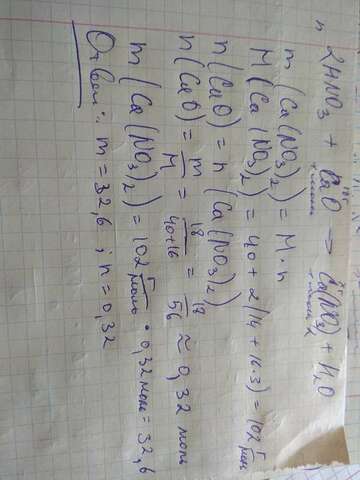 2HNO₃ + CaO → Ca(NO₃)₂ + H₂O
m (Ca(NO₃)₂) = M · n
M (Ca(NO₃)₂) = 40 + 2(14 + 16·3) = 102 г/моль
n (CaO) = n (Ca(NO₃)₂)
n (CaO) = m/M = 18/40+16 = 18/56 ≈ 0,32 моль
m (Ca(NO₃)₂) = 102 г/моль · 0,32 моль = 32,6
Ответ: m = 32,6 ; n = 0,32